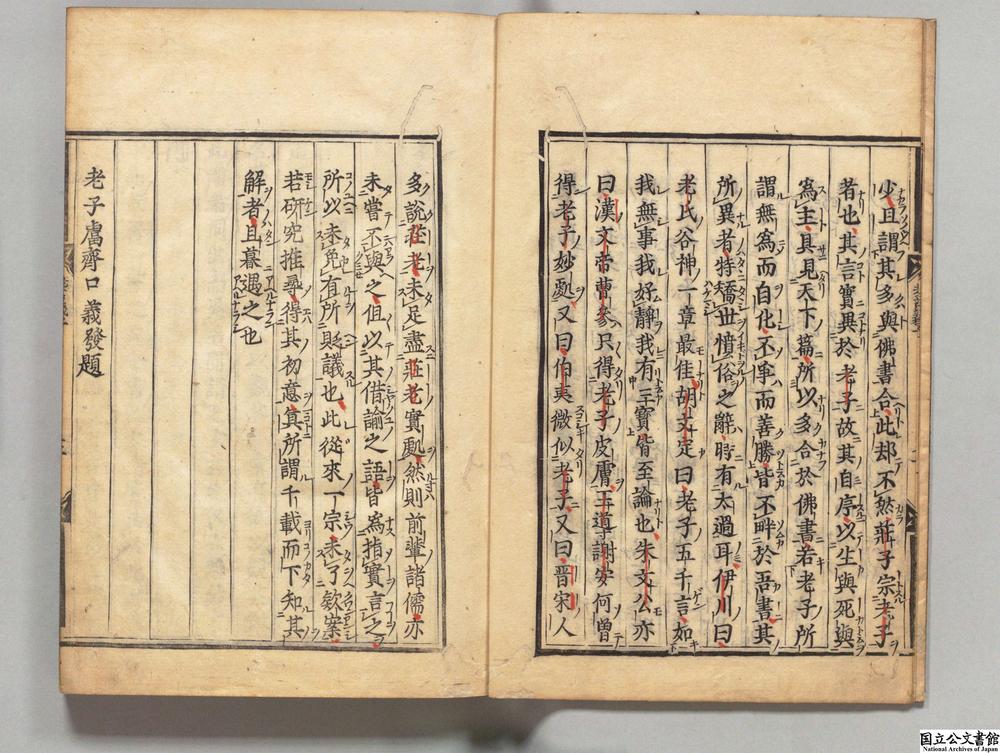 少且謂其多與佛書合此却不然莊子宗老子
者也其言實異於老子故其自序以生與死與
為主具見天下篇所以多合於佛書若老子所
謂無為而自化不爭而善勝皆不畔於吾書其
所異者特矯世憤俗之辭時有太過耳伊川曰
老氏谷神一章最佳胡文定曰老子五千言如
我無事我好靜我有三寶皆至論也朱文公亦
曰漢文帝曹參只得老子皮膚王導謝安何曾
得老子妙處又曰伯夷微似老子又曰晉宋人
多說莊老未足盡莊老實處然則前輩諸儒亦
未嘗不與之但以其借諭之語皆為指實言之
所以未免有所貶議也此從來一宗未了欸案
若研究推尋得其初意真所謂千載而下知其
解者旦暮遇之也
老子鬳齊口義發題
国立公文書館
National Archives of Japan